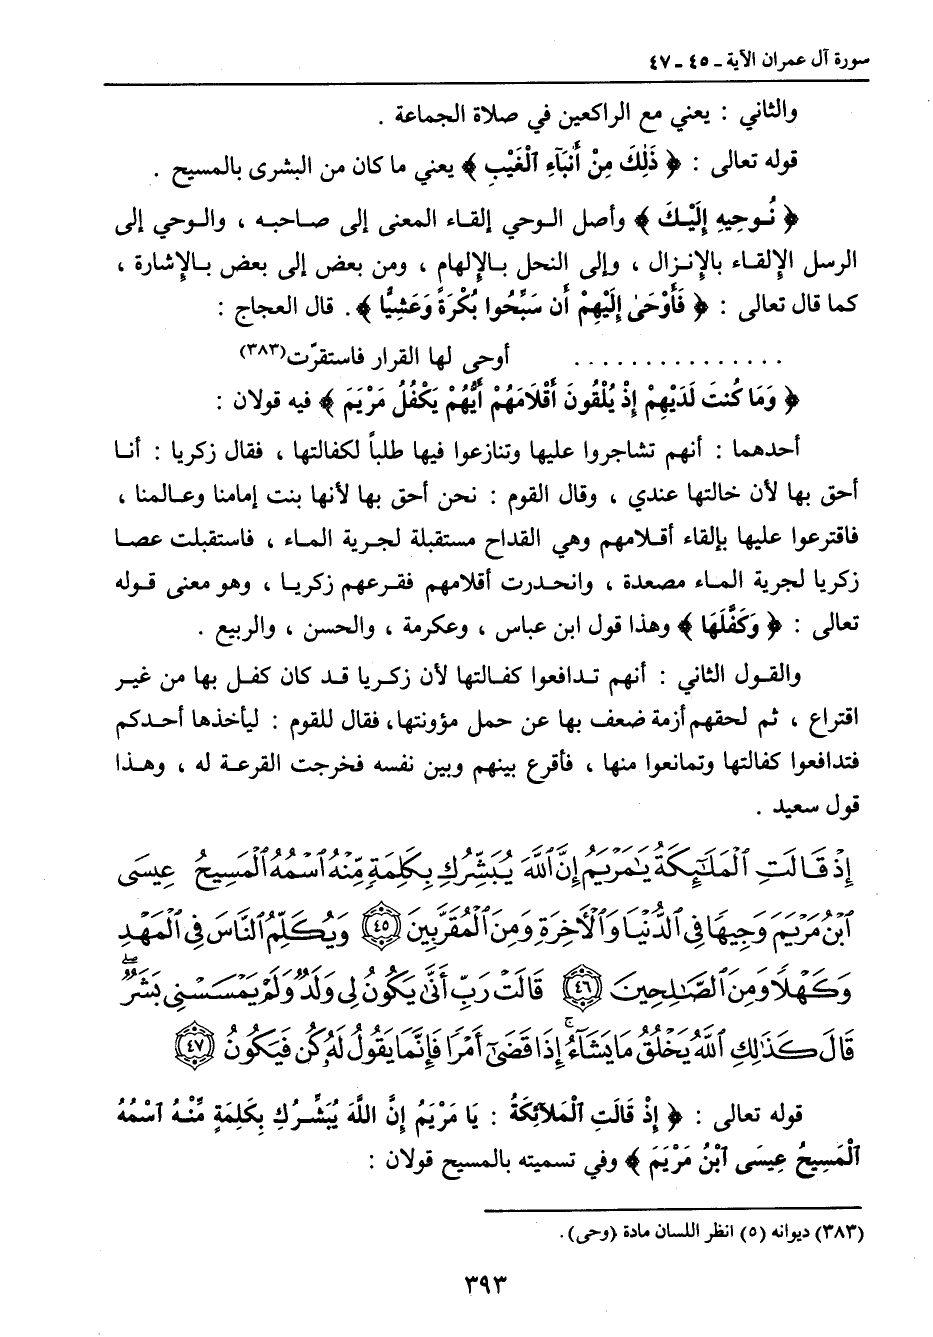 سورة آل عمران الآية ـ ٤٥ ـ ٤٧
والثاني : يعني مع الراكعين في صلاة الجماعة .
قوله تعالى : ﴿ ذَٰلِكَ مِنْ أَنْبَآءِ ٱلْغَيْبِ ﴾ يعني ما كان من البشرى بالمسيح .
﴿ نُوحِيهِ إِلَيْكَ ﴾ وأصل الوحي إلقاء المعنى إلى صاحبه ، والوحي إلى
الرسل الإلقاء بالإنزال ، وإلى النحل بالإلهام ، ومن بعض إلى بعض بالإشارة ،
كما قال تعالى : ﴿ فَأَوْحَىٰ إِلَيْهِمْ أَن سَبِّحُوا بُكْرَةً وَعَشِيًّا ﴾ . قال العجاج :
. . . . . . . . . . . . . . . أوحى لها القرار فاستقرّت(٣٨٣)
﴿ وَمَا كُنتَ لَدَيْهِمْ إِذْ يُلْقُونَ أَقْلَامَهُمْ أَيُّهُمْ يَكْفُلُ مَرْيَمَ ﴾ فيه قولان :
أحدهما : أنهم تشاجروا عليها وتنازعوا فيها طلباً لكفالتها ، فقال زكريا : أنا
أحق بها لأن خالتها عندي ، وقال القوم : نحن أحق بها لأنها بنت إمامنا وعالمنا ،
فاقترعوا عليها بإلقاء أقلامهم وهي القداح مستقبلة لجرية الماء ، فاستقبلت عصا
زكريا لجرية الماء مصعدة ، وانحدرت أقلامهم فقرعهم زكريا ، وهو معنى قوله
تعالى : ﴿ وَكَفَّلَهَا ﴾ وهذا قول ابن عباس ، وعكرمة ، والحسن ، والربيع .
والقول الثاني : أنهم تدافعوا كفالتها لأن زكريا قد كان كفل بها من غير
اقتراع ، ثم لحقهم أزمة ضعف بها عن حمل مؤونتها، فقال للقوم : ليأخذها أحدكم
فتدافعوا كفالتها وتمانعوا منها ، فأقرع بينهم وبين نفسه فخرجت القرعة له ، وهذا
قول سعيد .
إِذْ قَالَتِ ٱلْمَلَٰٓئِكَةُ يَٰمَرْيَمُ إِنَّ ٱللَّهَ يُبَشِّرُكِ بِكَلِمَةٍ مِّنْهُ ٱسْمُهُ ٱلْمَسِيحُ عِيسَى
ٱبْنُ مَرْيَمَ وَجِيهًا فِى ٱلدُّنْيَا وَٱلْءَاخِرَةِ وَمِنَ ٱلْمُقَرَّبِينَ ﴿٤٥﴾ وَيُكَلِّمُ ٱلنَّاسَ فِى ٱلْمَهْدِ
وَكَهْلًا وَمِنَ ٱلصَّٰلِحِينَ ﴿٤٦﴾ قَالَتْ رَبِّ أَنَّىٰ يَكُونُ لِى وَلَدٌ وَلَمْ يَمْسَسْنِى بَشَرٌ ۖ
قَالَ كَذَٰلِكِ ٱللَّهُ يَخْلُقُ مَا يَشَآءُ ۚ إِذَا قَضَىٰٓ أَمْرًا فَإِنَّمَا يَقُولُ لَهُۥ كُن فَيَكُونُ ﴿٤٧﴾
قوله تعالى : ﴿ إِذْ قَالَتِ ٱلْمَلَآئِكَةُ : يَا مَرْيَمُ إِنَّ اللَّهَ يُبَشِّرُكِ بِكَلِمَةٍ مِّنْهُ ٱسْمُهُ
ٱلْمَسِيحُ عِيسَى ٱبْنُ مَرْيَمَ ﴾ وفي تسميته بالمسيح قولان :
(٣٨٣) ديوانه (٥) انظر اللسان مادة (وحى).
٣٩٣